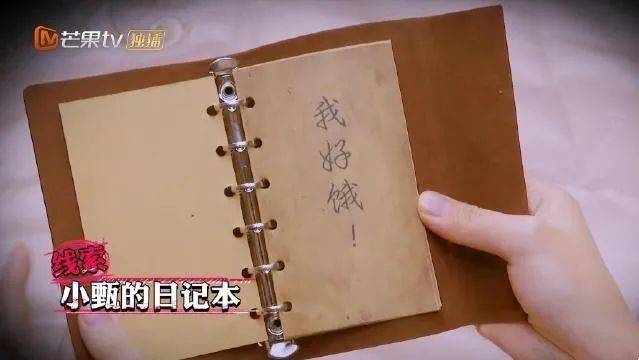 芒果tv 独播
我好饿！
线索
小甄的日记本